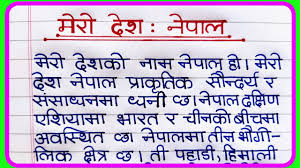 मेरो देश : नेपाल
मेरो देशको नाम नेपाल हो। मेरो
देश नेपाल प्राकृतिक सौन्दर्य र
संसाधनमा धनी छ। नेपाल दक्षिण
एशियामा भारत र चीनको बीचमा
अवस्थित छ। नेपालमा तीन भौगो-
लिक क्षेत्र छ। ती पहाडी, हिमाली